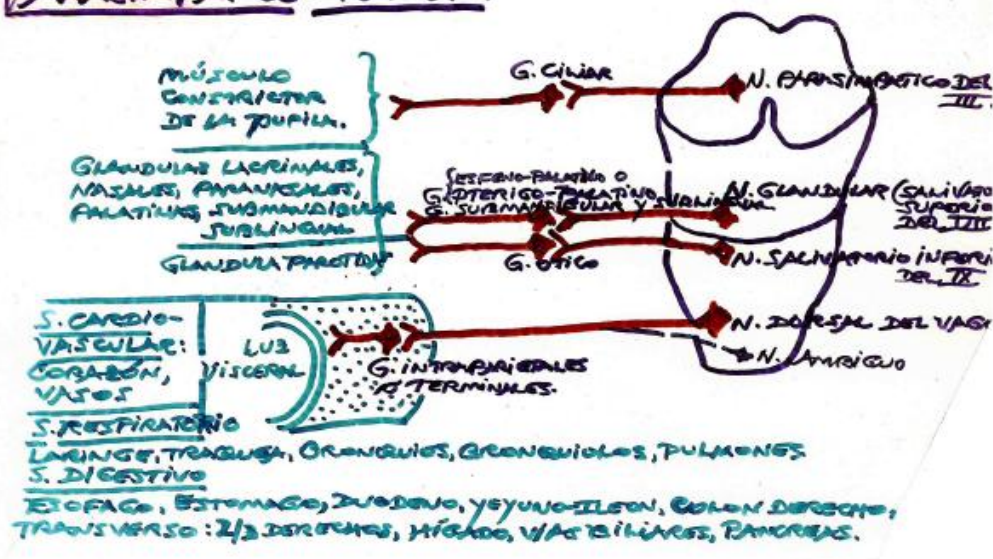 MÚSCULO
CONSTRICTOR
DE LA PUPILA.
G. CILIAR
N. PARASIMPATICO DEL
III
GLANDULAS LACRIMALES,
NASALES, PARANASALES,
PALATINAS, SUBMANDIBULAR
SUBLINGUAL
GLANDULA PAROTIDA
ESFENO-PALATINO O
G. PTERIGO-PALATINO
G. SUBMANDIBULAR Y SUBLINGUAL
G. OTICO
N. GLANDULAR (SALIVATO
SUPERIO
DEL VII
N. SALIVATORIO INFERI
DEL IX
N. DORSAL DEL VAG
N. AMBIGUO
S. CARDIO-
VASCULAR:
CORAZÓN,
VASOS
LUZ
VISCERAL
G. INTRAPARIETALES
O TERMINALES.
S. RESPIRATORIO
LARINGE, TRAQUEA, BRONQUIOS, BRONQUIOLOS, PULMONES
S. DIGESTIVO
ESOFAGO, ESTOMAGO, DUODENO, YEYUNO-ILEON, COLON DERECHO,
TRANSVERSO: 2/3 DERECHOS, HÍGADO, VIAS BILIARES, PANCREAS.